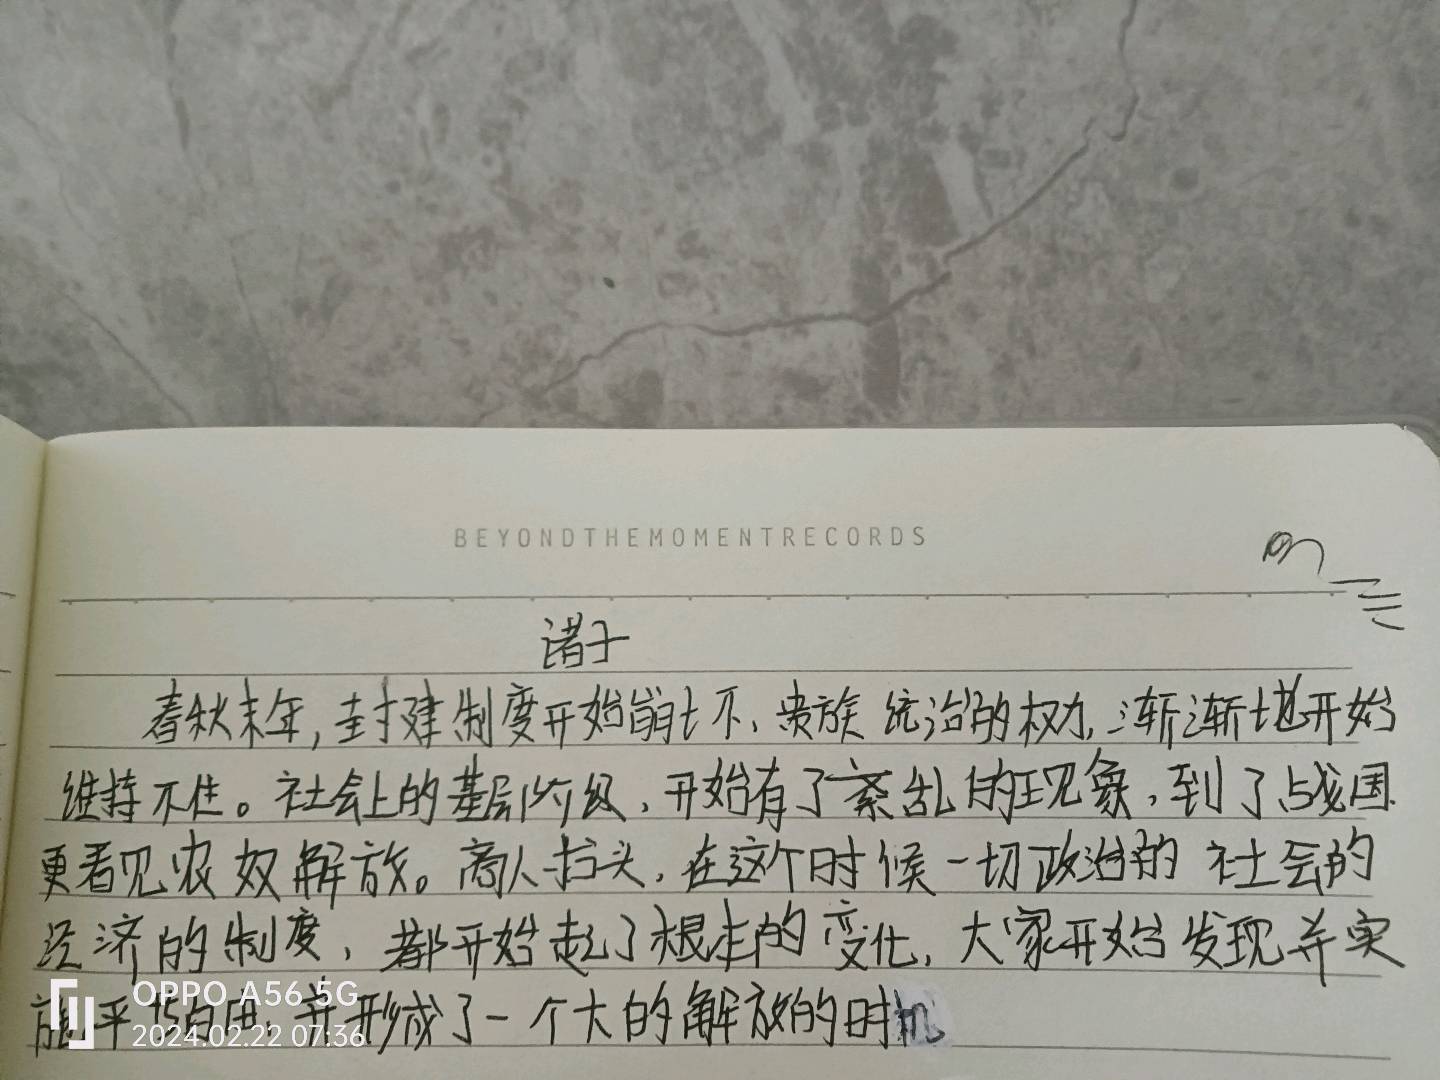 BEYONDTHEMOMENTRECORDS
诸子
春秋末年,封建制度开始崩坏、贵族统治的权力,渐渐地开始
维持不住。社会上的基层阶级,开始有了紊乱的现象,到了战国
更看见农奴解放。商人抬头,在这个时候一切政治的社会的
经济的制度,都开始起了根本的变化,大家开始发现并实
施平均 并形成了一个大的解放的时机
OPPO A56 5G
2024.02.22 07:36